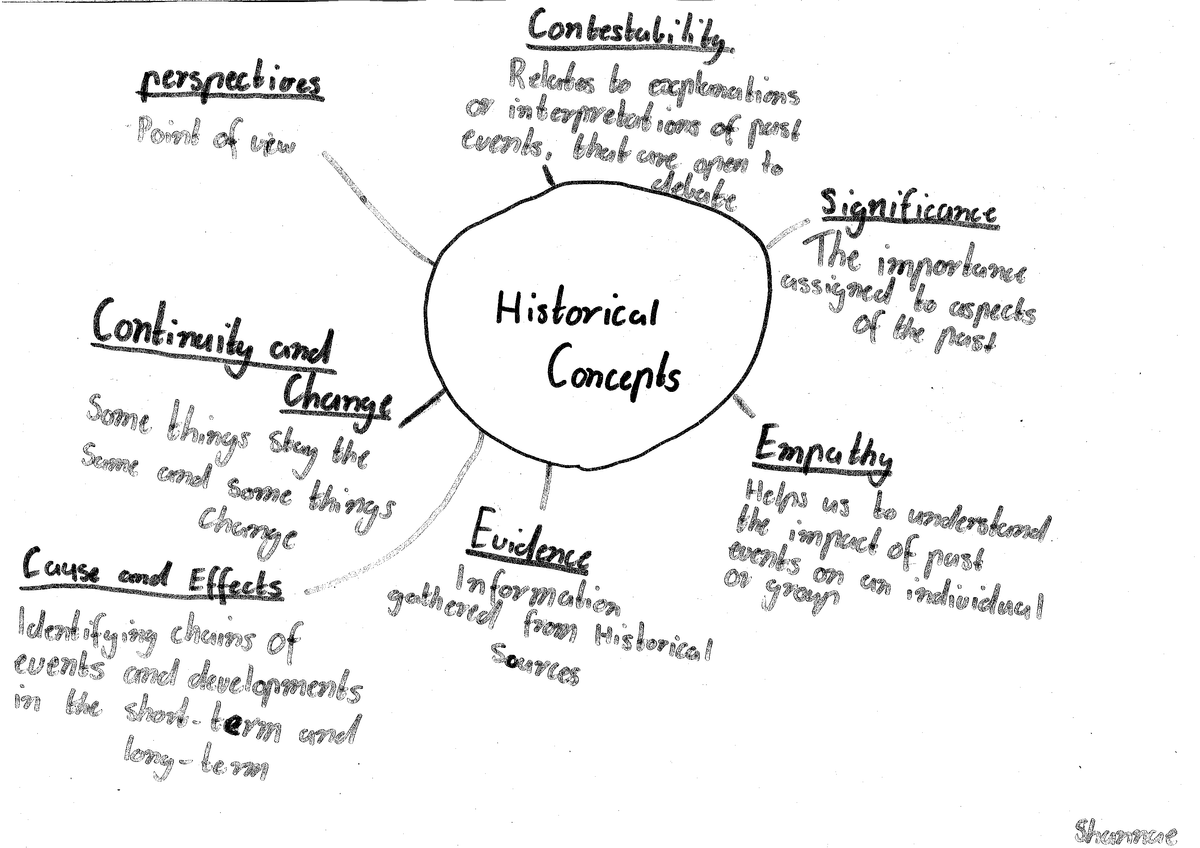 Contestability.
Relates to explanations
or interpretations of past
events, that are open to
debate
perspectives
Point of view
Significance
The importance
assigned to aspects
of the past
Historical
Concepts
Continuity and
Change
Some things stay the
Same and some things
Change
Empathy
Helps us to understand
the impact of past
events on an individual
or group
Evidence
Information
gathered from Historical
Sources
Cause and Effects
Identifying chains of
events and developments
in the short-term and
long-term